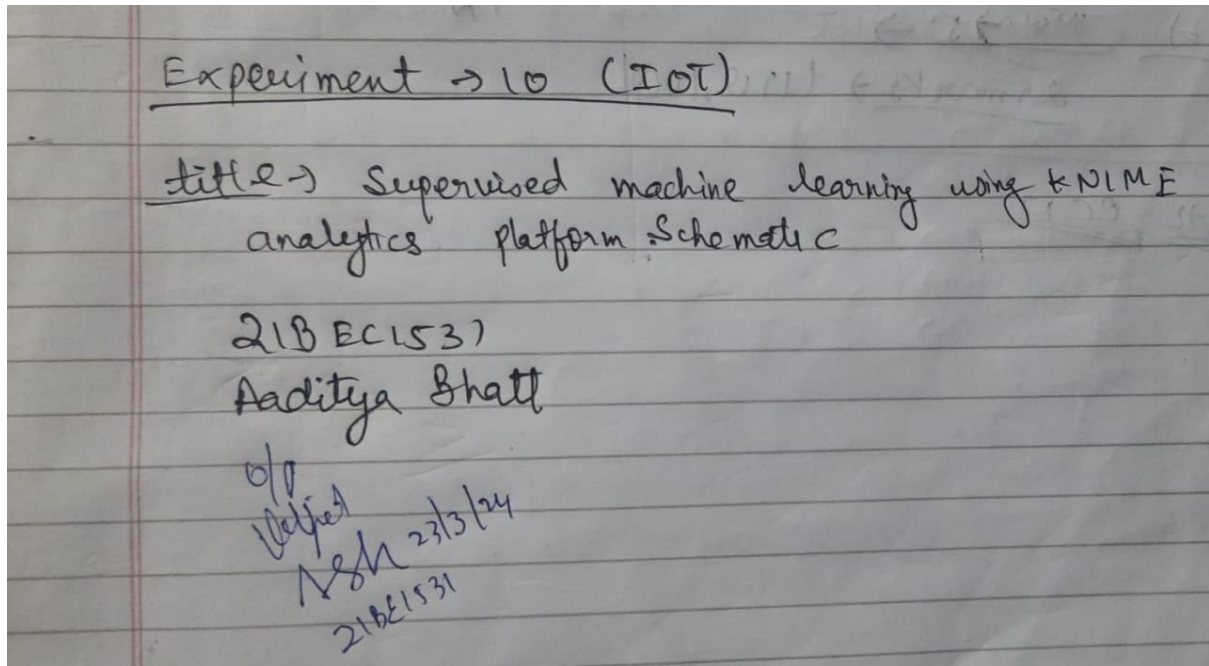 Experiment → 10 (IOT)
title → Supervised machine learning using KNIME
analytics platform Schematic
21BEC1537
Aaditya Bhatt
o/p
Verified
23/3/24
21BE1531